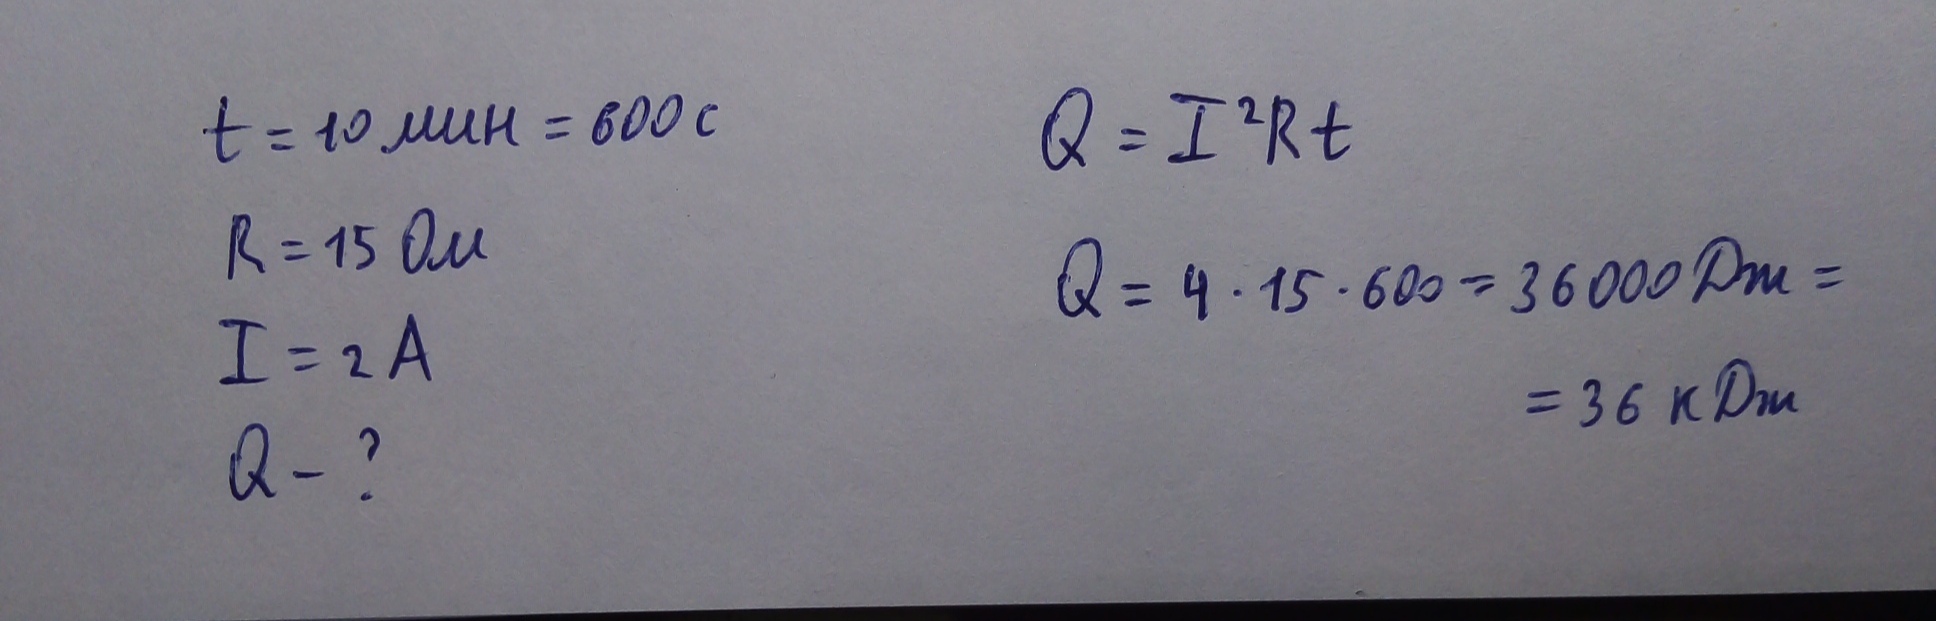 t = 10 мин = 600 с
R = 15 Ом
I = 2 А
Q - ?
Q = I²Rt
Q = 4 · 15 · 600 = 36000 Дж =
= 36 кДж